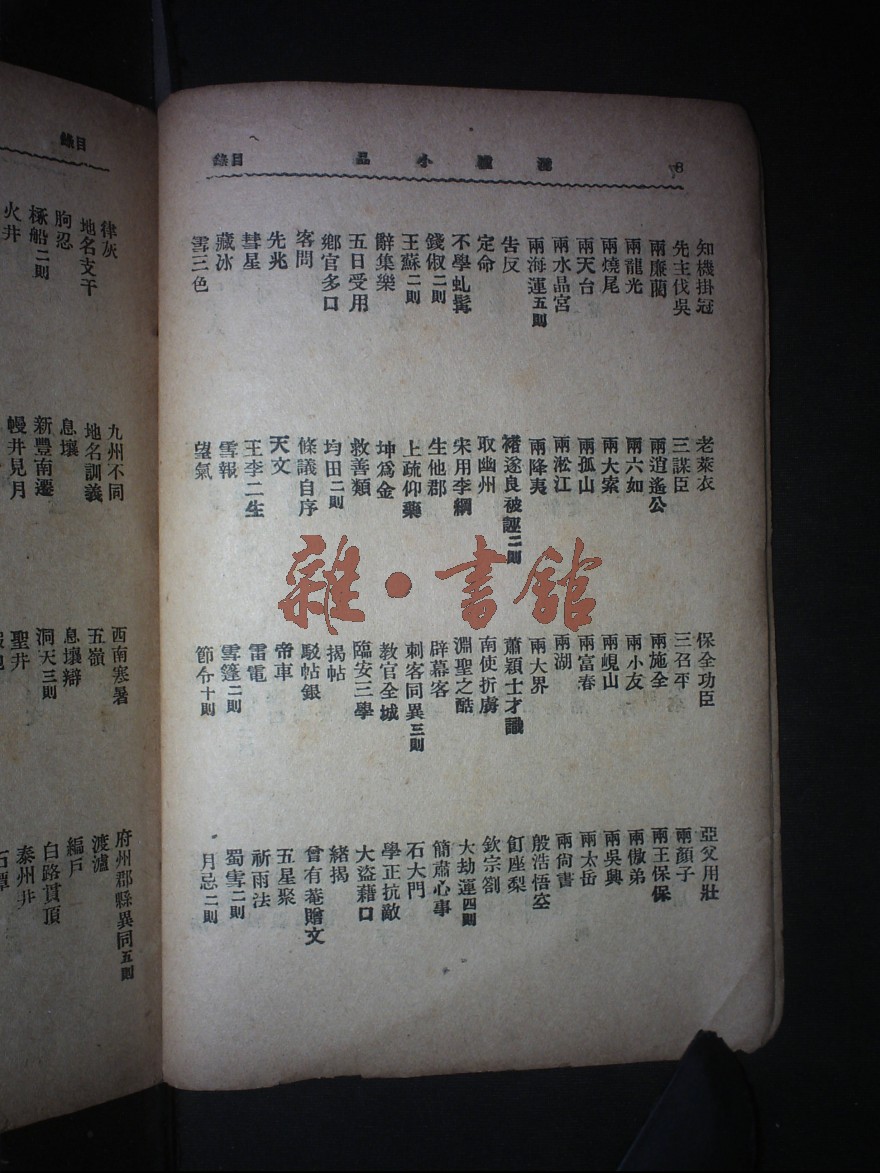 8
湧幢小品
目錄
知機掛冠
老萊衣
保全功臣
亞父用壯
先主伐吳
三謀臣
三召平
兩顏子
兩廉藺
兩逍遙公
兩施全
兩王保保
兩龍光
兩六如
兩小友
兩傲弟
兩燒尾
兩大索
兩峴山
兩吳興
兩天台
兩孤山
兩富春
兩太岳
兩水晶宮
兩淞江
兩湖
兩尙書
兩海運五則
兩降夷
兩大界
殷浩悟空
告反
褚遂良被誣二則
蕭穎士才識
釘座梨
定命
取幽州
南使折虜
欽宗劄
不學虬髯
宋用李綱
淵聖之酷
大劫運四則
錢俶二則
生他郡
辟幕客
簡肅心事
王蘇二則
上疏仰藥
刺客同異三則
石大門
辭集樂
坤爲金
教官全城
學正抗敵
五日受用
救善類
臨安三學
大盜藉口
鄉官多口
均田二則
揭帖
緒揭
客問
條議自序
駁帖銀
曾有菴贈文
先兆
天文
帝車
五星聚
彗星
王李二生
雷電
祈雨法
藏冰
雪報
雪篷二則
蜀雪二則
雪三色
望氣
節令十則
月忌二則
目錄
律灰
九州不同
西南寒暑
府州郡縣異同五則
地名支干
地名訓義
五嶺
渡瀘
朐忍
息壤
息壤辯
編戶
椓船二則
新豐南遷
洞天三則
白路貫頂
火井
幔井見月
聖井
泰州井
雜·書館